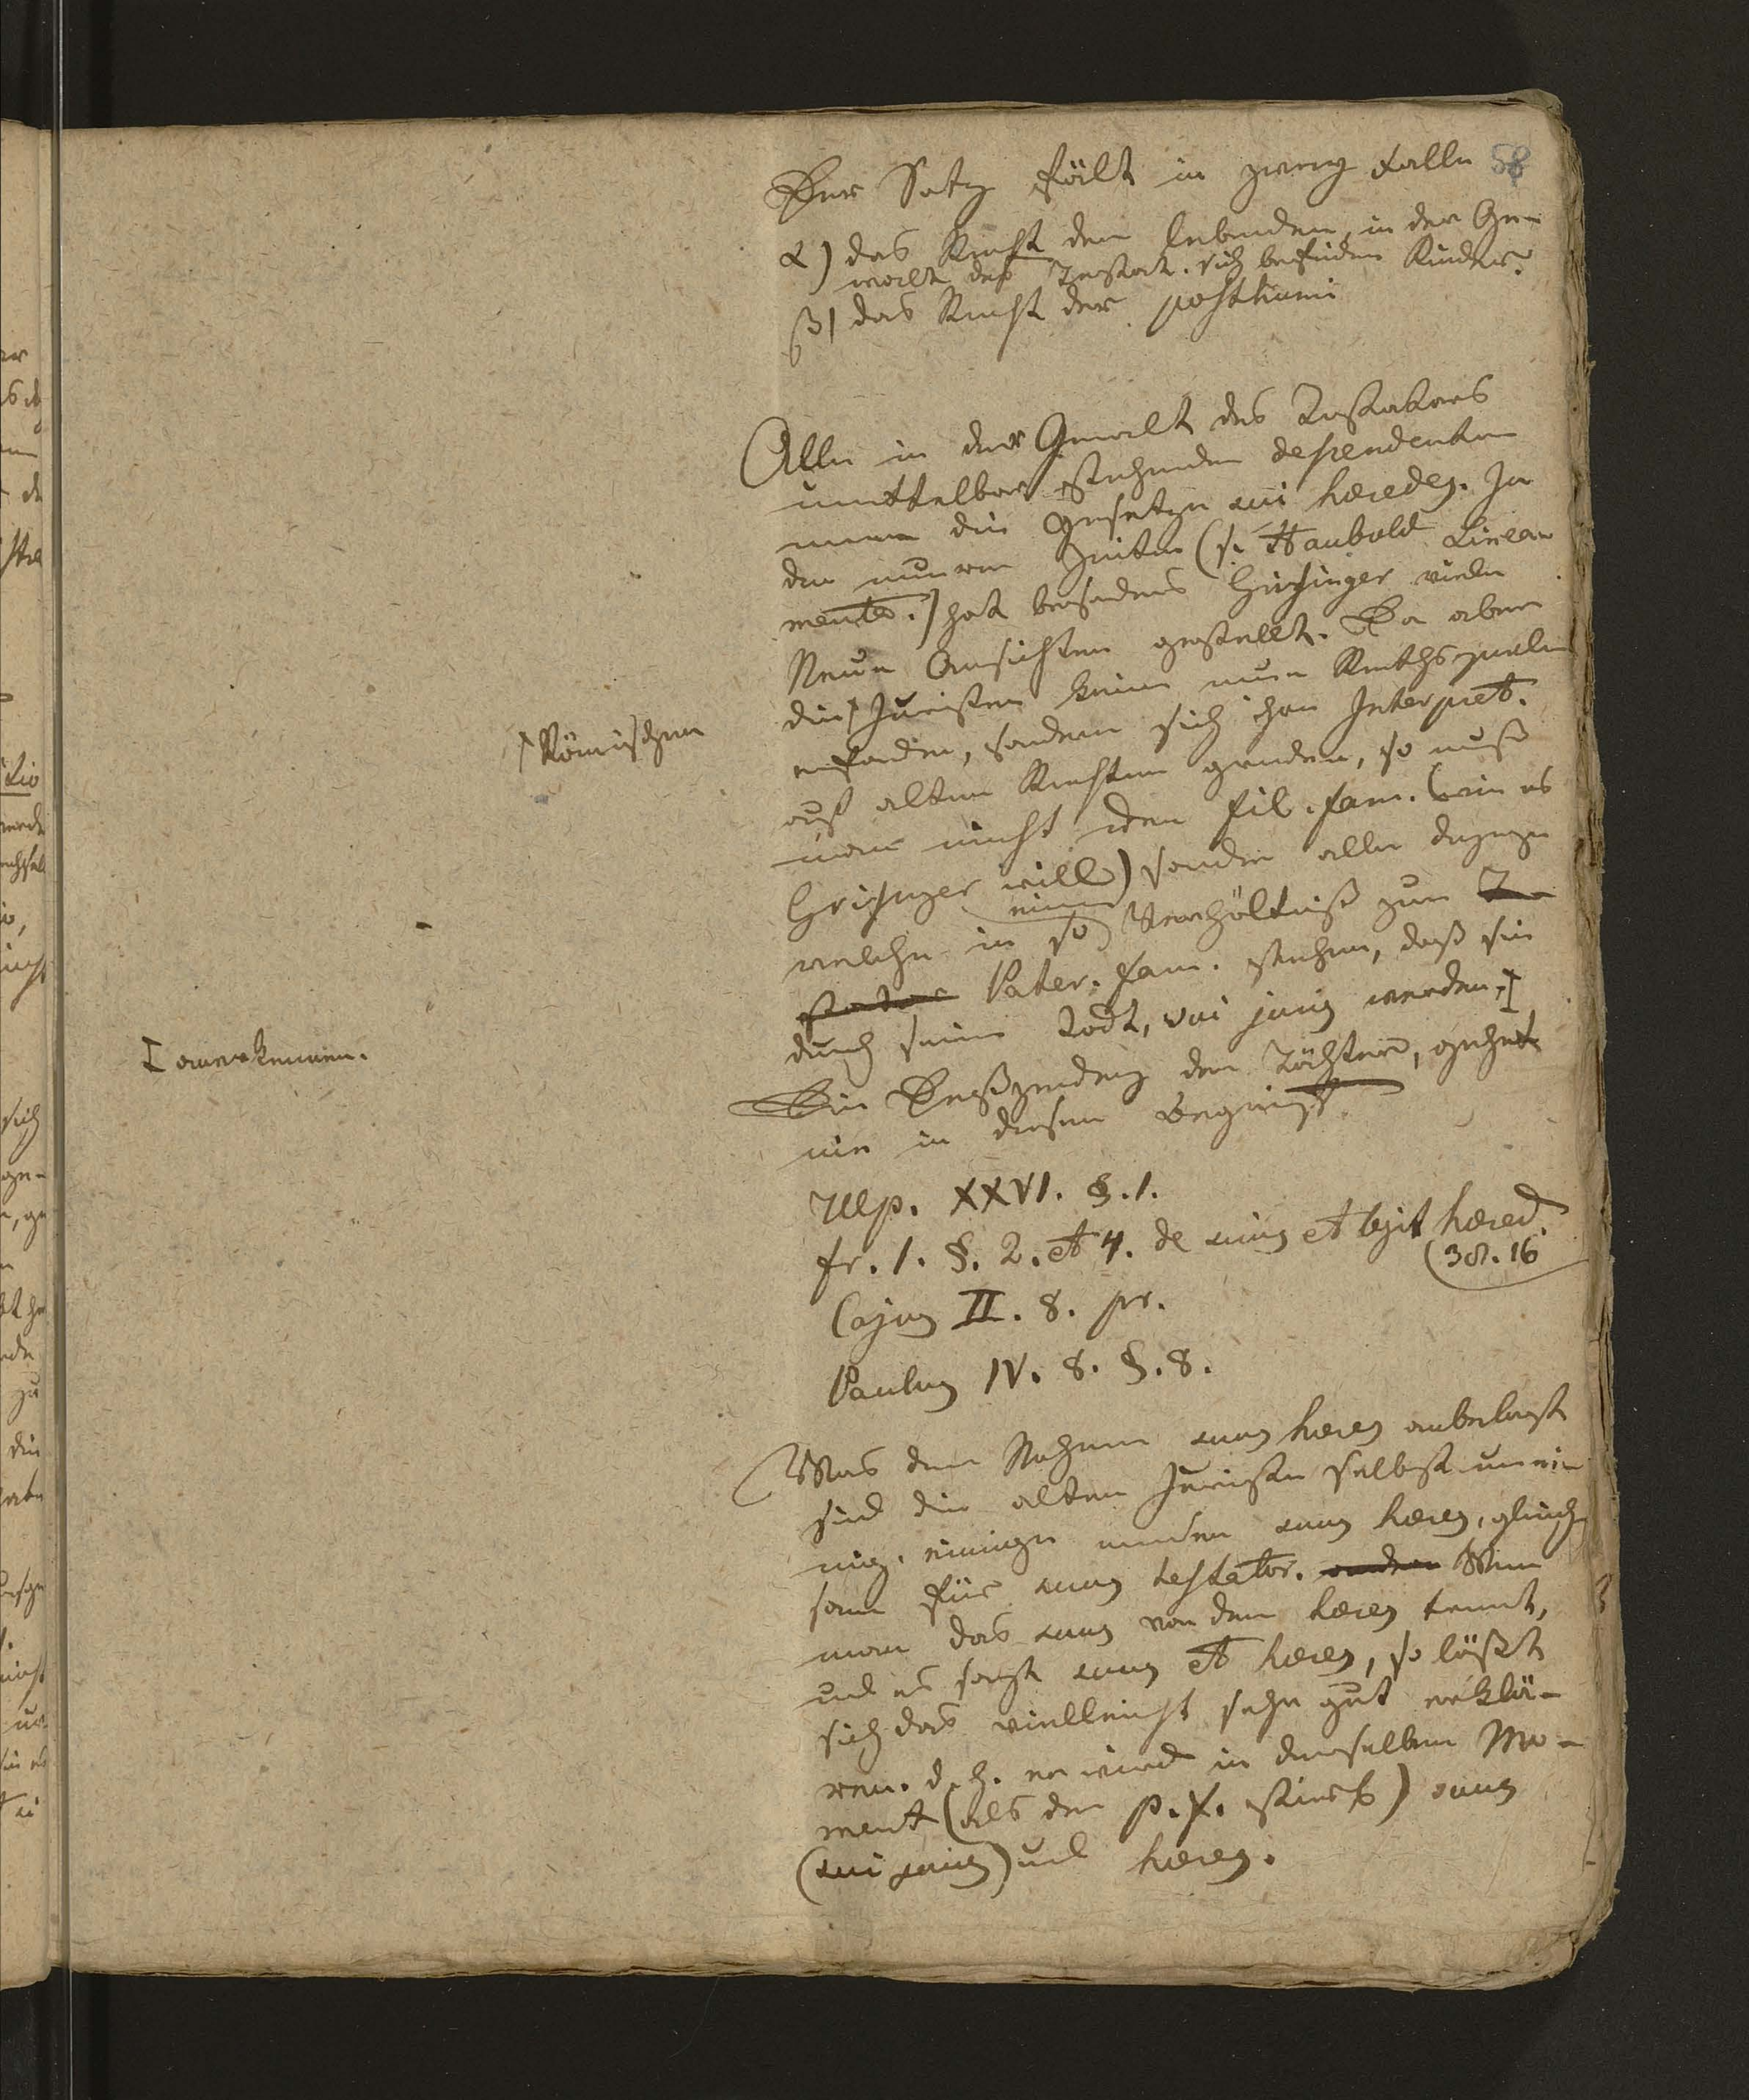 58
Der Satz fält in zwey Falle
α) das Recht den lebenden, in der Ge-
walt des Testat. sich befinden Kinder.
β) das Recht der posthumi
Alle in der Gewalt des Testators
unmittelbar stehenden descendenten
nennen die Gesetze sui heredes. In
den neuern Zeiten (s. Haubold Linea-
menta.) hat besonders Griesinger viele
Neue Ansichten gestellt. Da aber
die Juristen keine neue Rechtsquelle
⌈Römischen
erfanden, sondern sich ihre Interpret.
auf alten Rechten gründen, so muß
man nicht den fil. fam. (wie es
Griesinger will) sonder alle diejenige
welche in so einem Verhältniß zum Te-
stator Pater. fam. stehen, daß sie
durch seinen Todt, sui juris werden,
I anerkennen.
Die Descendenz der Töchter, gehört
nie in diesen Begriff.
Ulp. XXVI. §. 1.
fr. 1. §. 2. et 4. de suis et legit hered.
(38. 16
Cajus II. 8. pr.
Paulus IV. 8. §. 8.
Was den Nahmen suus heres anbelangt
sind die alten Juristen selbst unei-
nig. einige nennen suus heres, gleich-
sam für suus testator. andere Wenn
man das suus von dem heres trennt,
und es sagt suus et heres, so läßt
sich das vielleicht sehr gut erklä-
ren. d. h. er wird in demselben Mo-
ment (als der p. f. stirbt) suus
(sui juris) und heres.